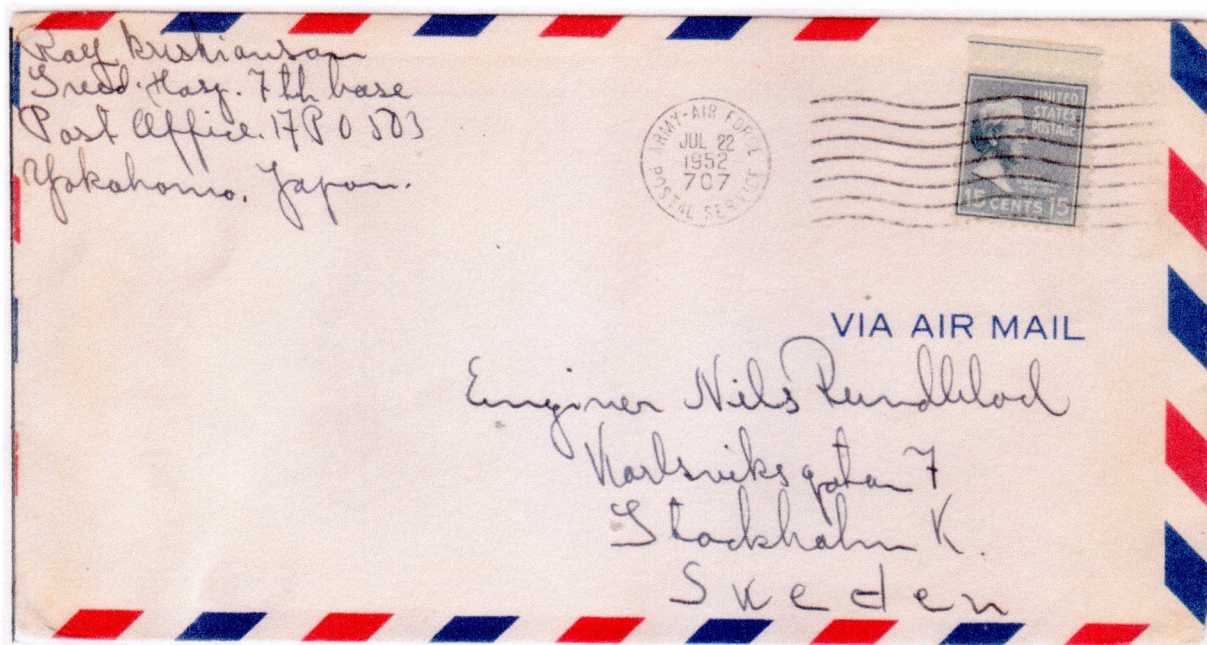 Ray Kristianson
Swed. Hosp. 7th base
Post Office. 17 P O 503
Yokohomo. Japon.
ARMY-AIR FORCE
JUL 22
1952
707
POSTAL SERVICE
UNITED
STATES
POSTAGE
15 CENTS 15
VIA AIR MAIL
Enginer Nils Rundblod
Karlsviksgatan 7
Stockholm K.
Sweden